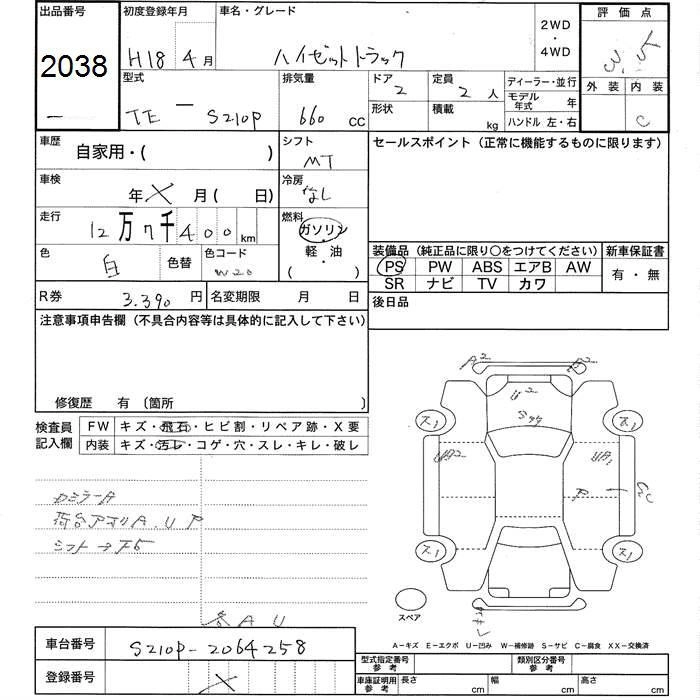 出品番号
2038
初度登録年月
H18 4月
車名・グレード
ハイゼットトラック
2WD
・
4WD
評価点
3.5
外装 内装
C
型式
TE - S210P
排気量
660 CC
ドア
2
定員
2 人
形状
積載
kg
ディーラー・並行
モデル年式 年
ハンドル 左・右
車歴
自家用・( )
シフト
MT
セールスポイント (正常に機能するものに限ります)
車検
年 月 ( 日)
冷房
なし
走行
12万7千400 km
燃料
ガソリン
軽・油
( ・ )
色
白
色替
色コード
W20
装備品 (純正品に限り○をつけてください)
PS PW ABS エアB AW
SR ナビ TV カワ
新車保証書
有・無
R券
3.390 円
名変期限 月 日
後日品
注意事項申告欄 (不具合内容等は具体的に記入して下さい)
修復歴 有 〔箇所
検査員
記入欄
FW キズ・飛石・ヒビ割・リペア跡・X要
内装 キズ・汚レ・コゲ・穴・スレ・キレ・破レ
ミラーA
荷台アオリA.U P
A U
A2
U2
UA2
P
ス1
ス1
ス1
ス1
スペア
A-キズ E-エクボ U-凹み W-補修跡 S-サビ C-腐食 XX-交換済
車台番号
S210P-2064258
登録番号
型式指定番号
参考
類別区分番号
参考
車庫証明用
参考
長さ cm
幅 cm
高さ cm